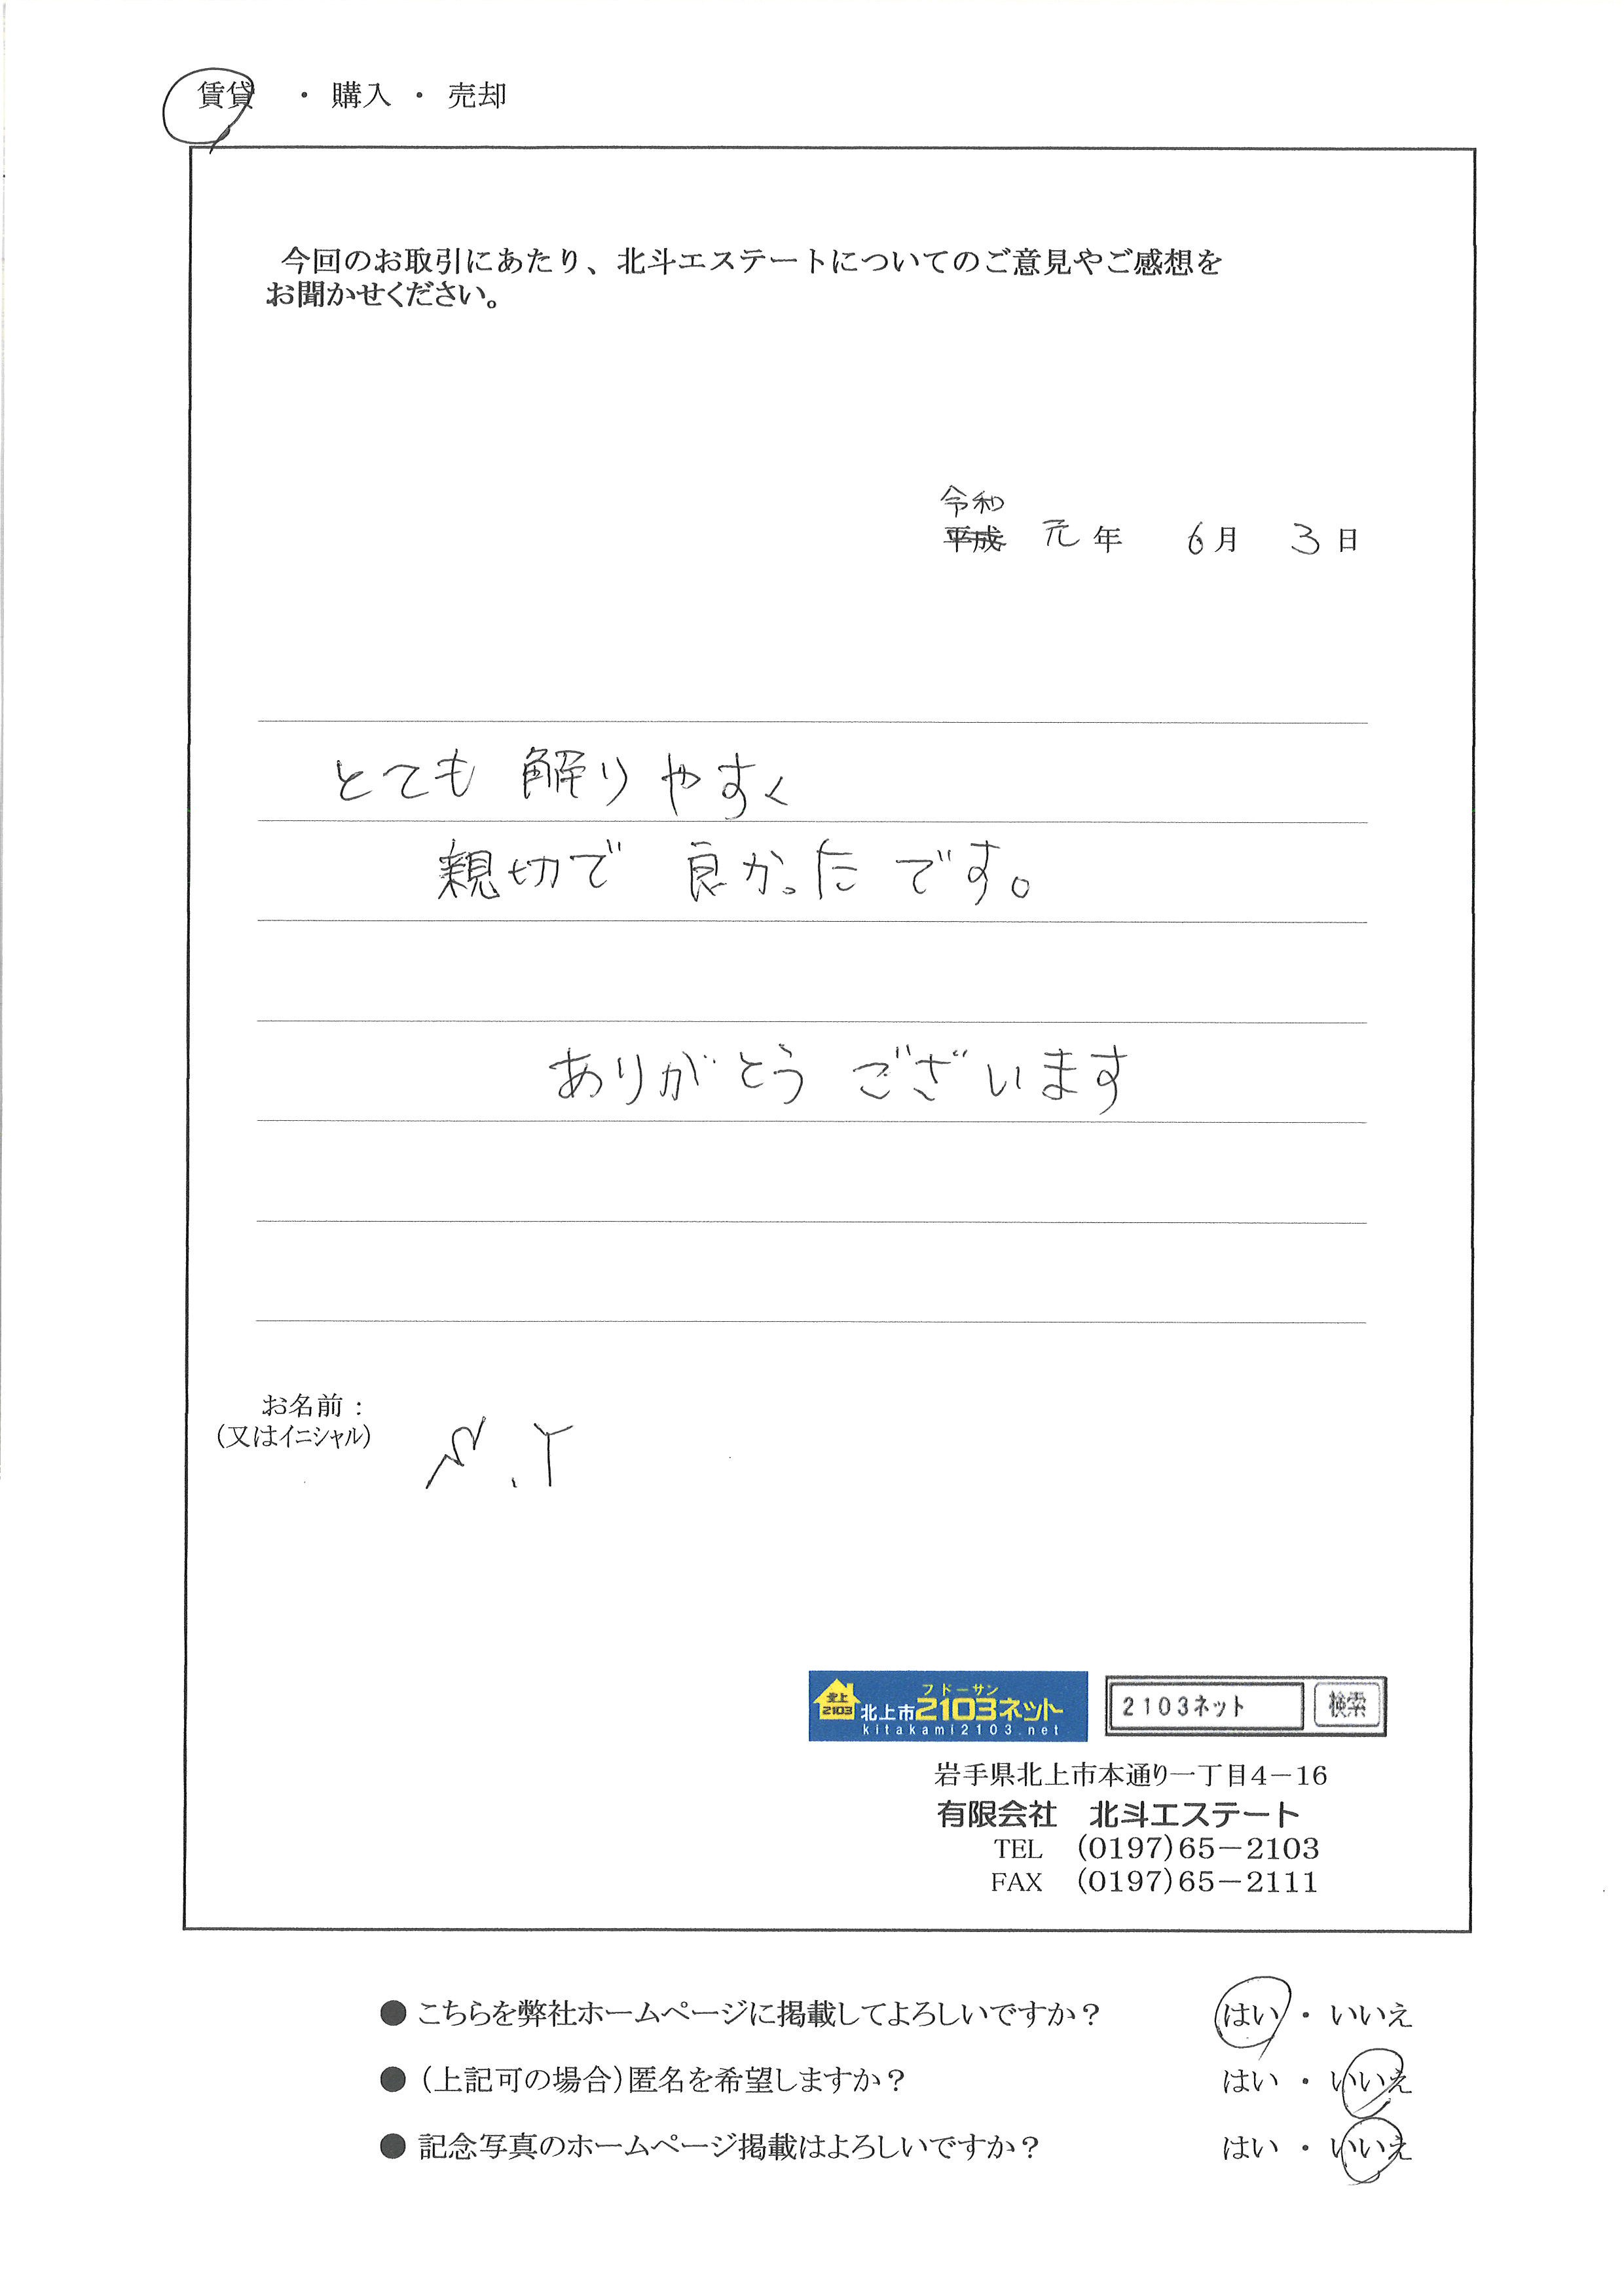 賃貸 ・ 購入 ・ 売却
今回のお取引にあたり、北斗エステートについてのご意見やご感想を
お聞かせください。
令和
平成 元年 6月 3日
とても 解りやすく
親切で 良かったです。
ありがとう ございます
お名前：
（又はイニシャル）
.Y
フドーサン
北上
2103
北上市2103ネット
kitakami2103.net
2103ネット 検索
岩手県北上市本通り一丁目4－16
有限会社 北斗エステート
TEL (0197)65－2103
FAX (0197)65－2111
● こちらを弊社ホームページに掲載してよろしいですか？ はい ・ いいえ
● （上記可の場合）匿名を希望しますか？ はい ・ いいえ
● 記念写真のホームページ掲載はよろしいですか？ はい ・ いいえ